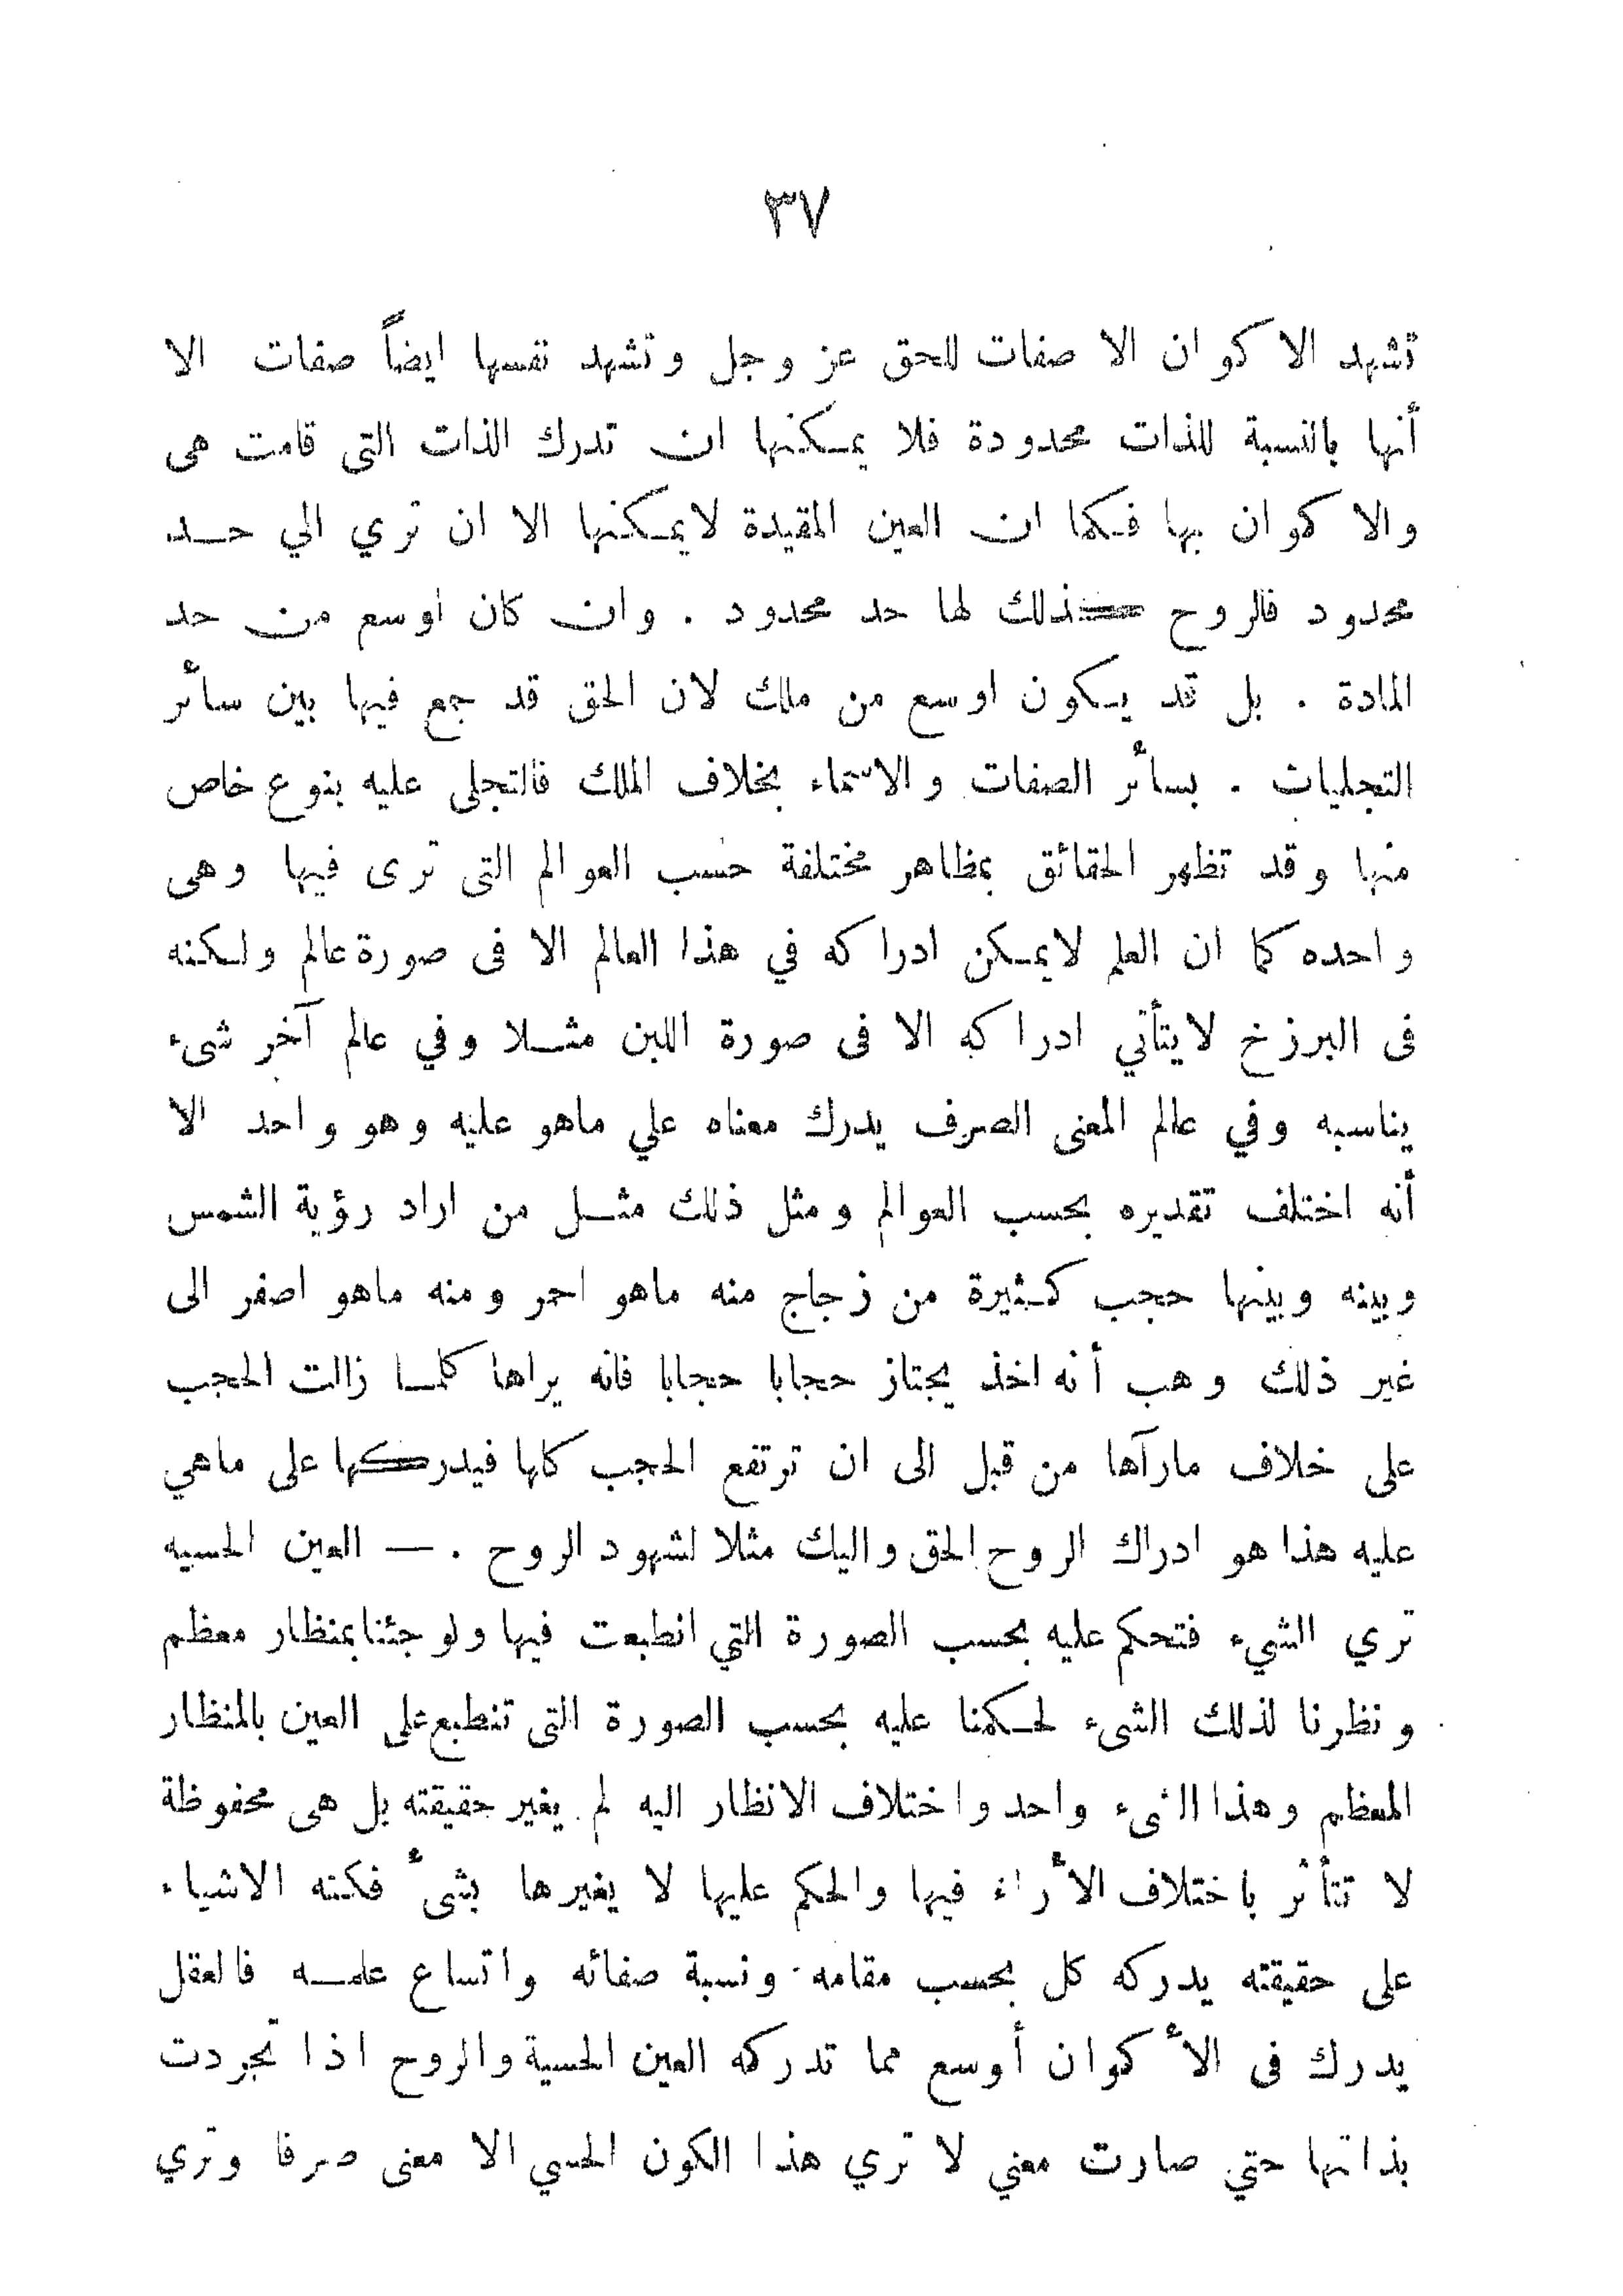 ٣٧
تشهد الا كوان الا صفات للحق عز وجل وتشهد نفسها ايضاً صفات الا
أنها بالنسبة للذات محدودة فلا يمكنها ان تدرك الذات التى قامت هى
والا كوان بها فكما ان العين المقيدة لايمكنها الا ان تري الي حد
محدود فالروح كذلك لها حد محدود . وان كان اوسع من حد
المادة . بل قد يكون اوسع من ملك لان الحق قد جمع فيها بين سائر
التجليات . بسائر الصفات والاسماء بخلاف الملك فالتجلى عليه بنوع خاص
منها وقد تظهر الحقائق بمظاهر مختلفة حسب العوالم التى ترى فيها وهى
واحده كما ان العلم لايمكن ادراكه في هذا العالم الا فى صورة عالم ولكنه
فى البرزخ لايتأتي ادراكه الا فى صورة اللبن مثلا وفي عالم آخر شىء
يناسبه وفي عالم المعنى الصرف يدرك معناه علي ماهو عليه وهو واحد الا
أنه اختلف تقديره بحسب العوالم ومثل ذلك مثل من اراد رؤية الشمس
وبينه وبينها حجب كثيرة من زجاج منه ماهو احمر ومنه ماهو اصفر الى
غير ذلك وهب أنه اخذ يجتاز حجابا حجابا فانه يراها كلما زالت الحجب
على خلاف مارآها من قبل الى ان ترتفع الحجب كلها فيدركها على ماهي
عليه هذا هو ادراك الروح الحق واليك مثلا لشهود الروح . — العين الحسيه
تري الشيء فتحكم عليه بحسب الصورة التي انطبعت فيها ولو جئنا بمنظار معظم
ونظرنا لذلك الشىء لحكمنا عليه بحسب الصورة التى تنطبع على العين بالمنظار
المعظم وهذا الشىء واحد واختلاف الانظار اليه لم يغير حقيقته بل هى محفوظة
لا تتأثر باختلاف الأراء فيها والحكم عليها لا يغيرها بشىء فكنه الاشياء
على حقيقته يدركه كل بحسب مقامه ونسبة صفائه واتساع علمه فالعقل
يدرك فى الأكوان أوسع مما تدركه العين الحسية والروح اذا تجردت
بذاتها حتي صارت معني لا تري هذا الكون الحسي الا معنى صرفا وتري